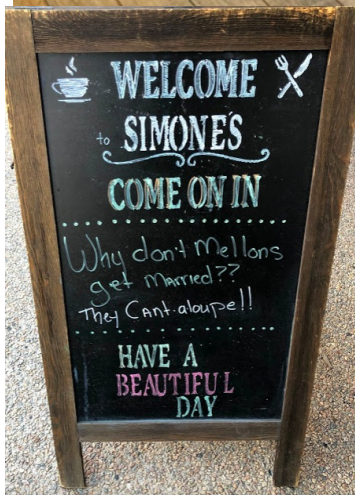 WELCOME
to SIMONE'S
COME ON IN
Why don't Mellons
get married??
They CAnt-aloupe!!
HAVE A
BEAUTIFUL
DAY